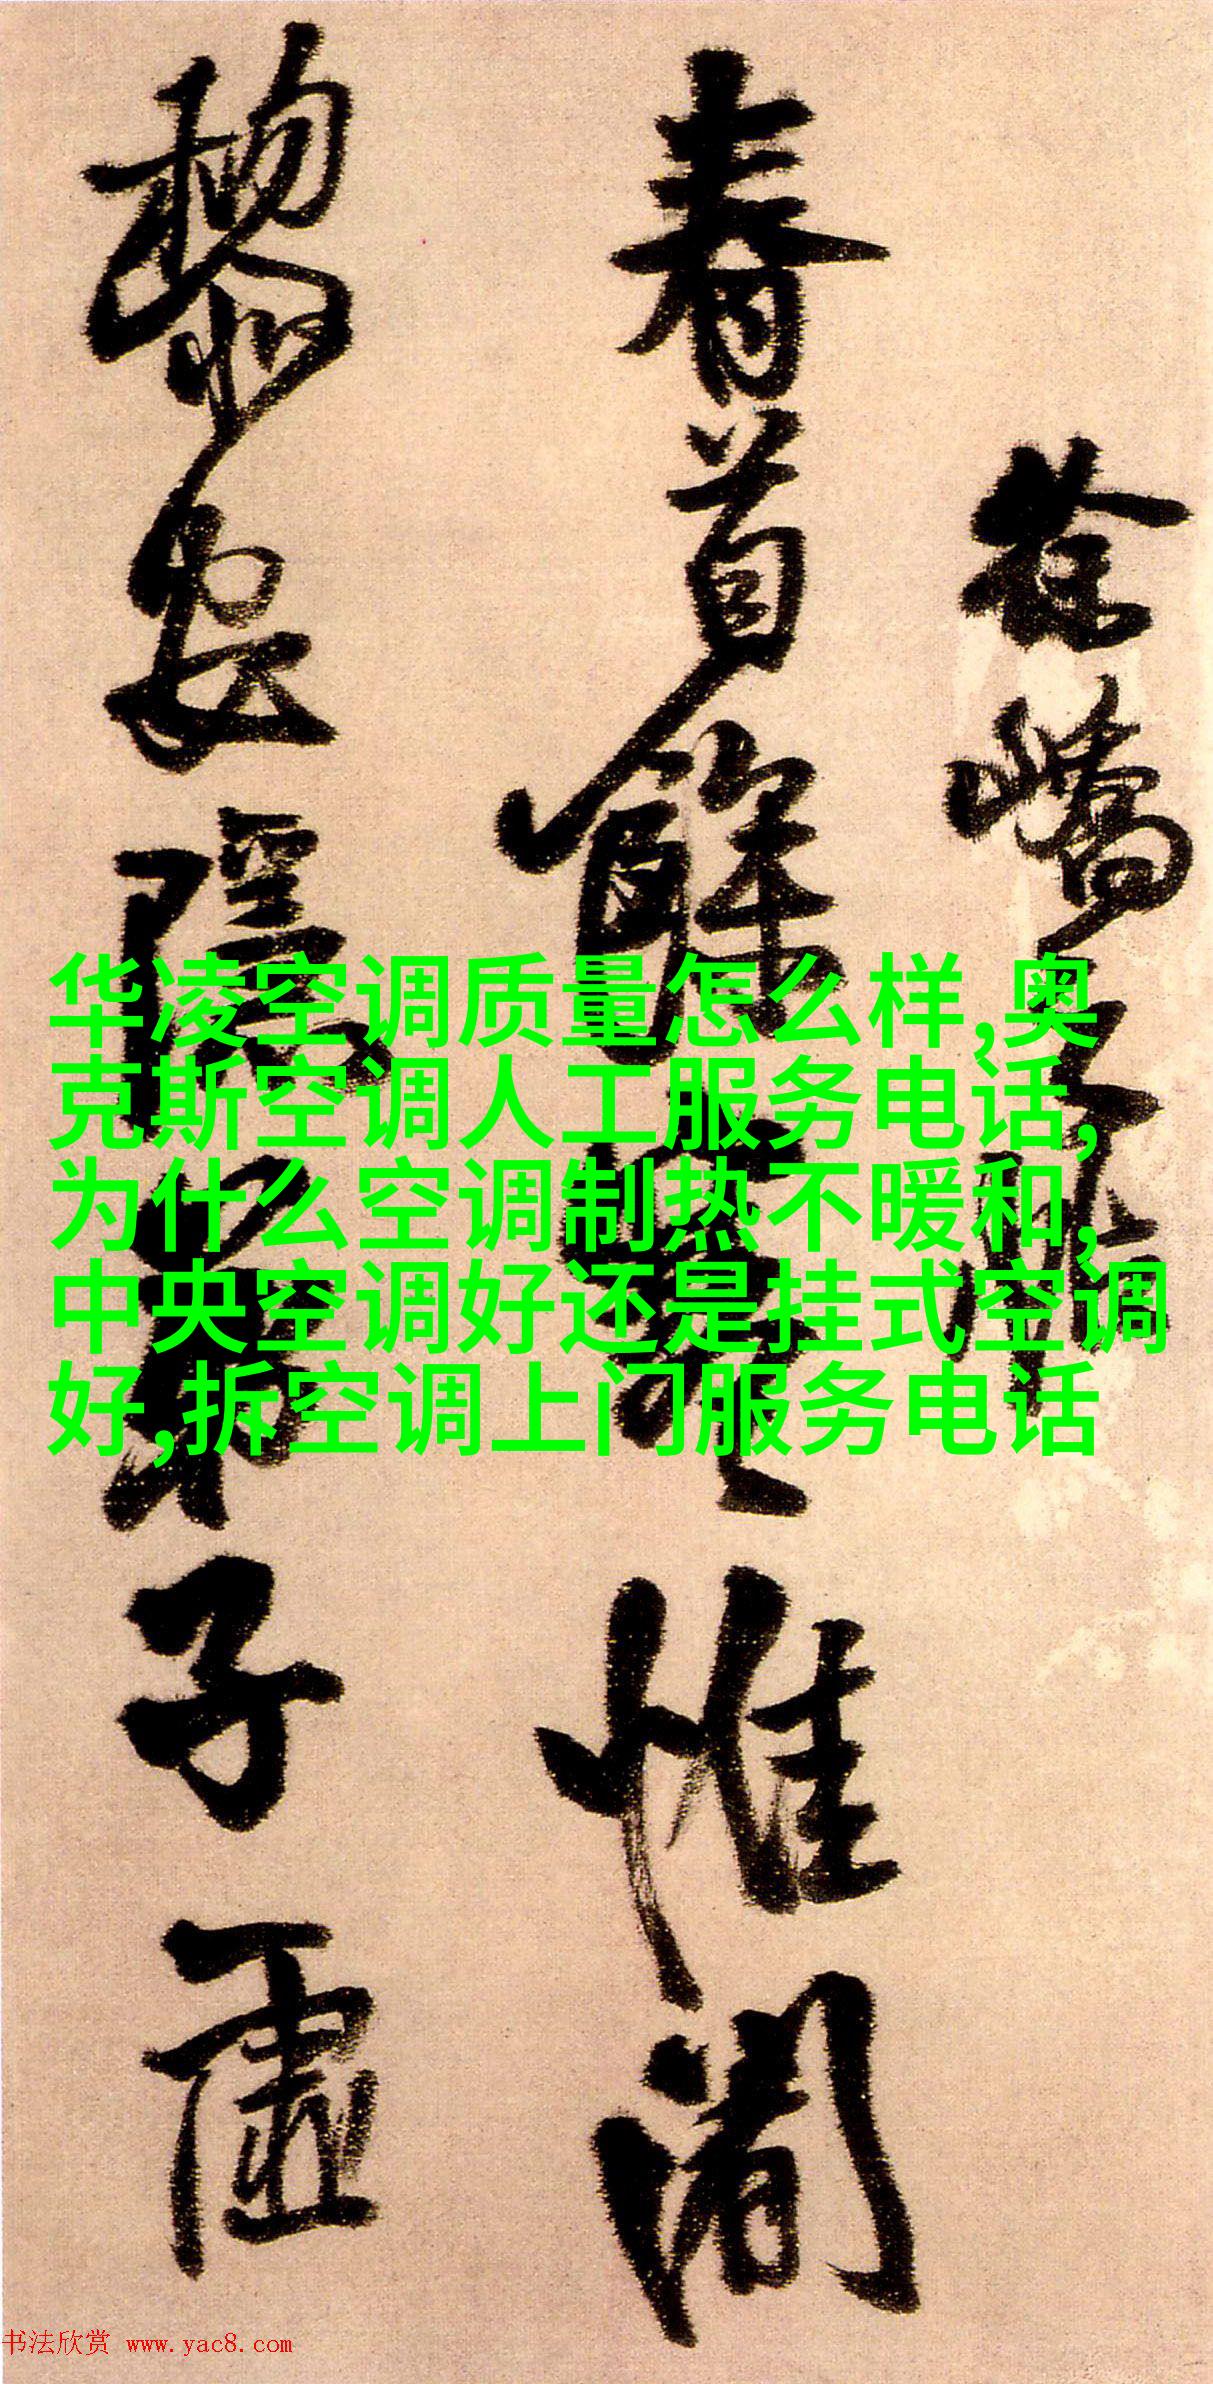 徐嶠之
春首餘寒惟闍
黎安隱弟子虛
华凌空调质量怎么样,奥
克斯空调人工服务电话,
为什么空调制热不暖和,
中央空调好还是挂式空调
好,拆空调上门服务电话
书法欣赏 www.yac8.com